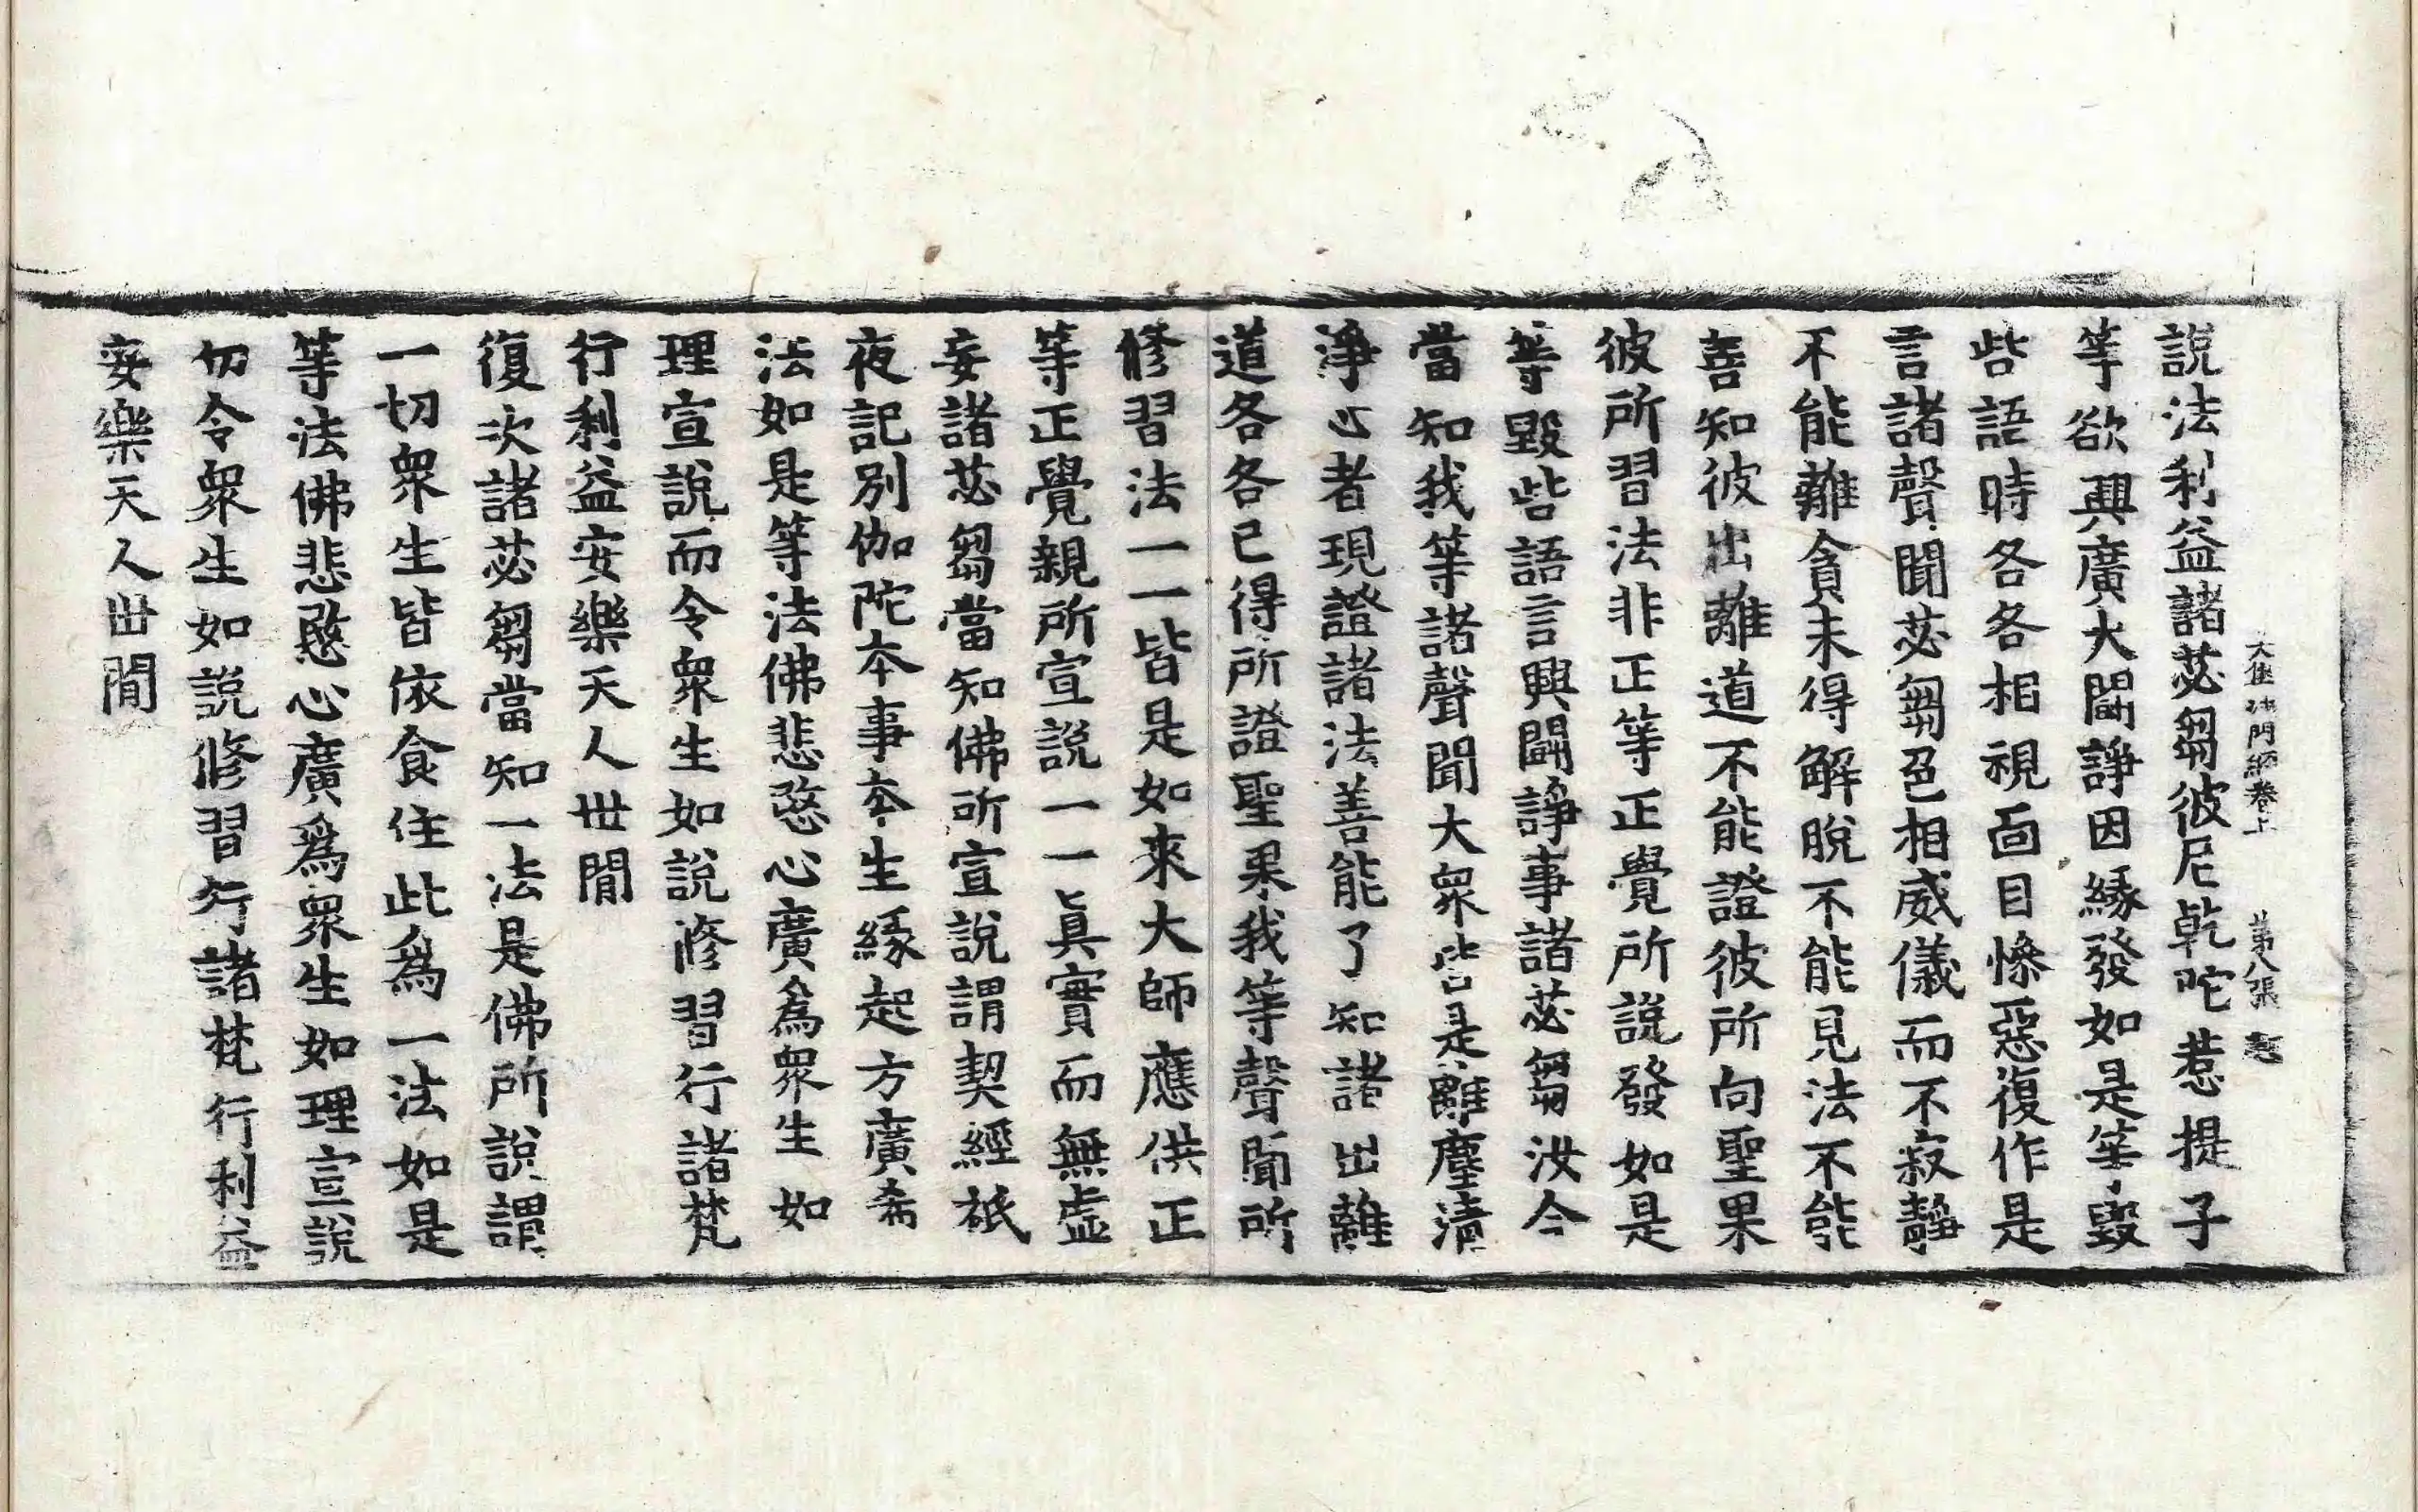 大集法門經卷上 第八張
說法利益諸苾芻彼尼乾陀惹提子
等欲興廣大鬪諍因緣發如是等毀
呰語時各各相視面目慘惡復作是
言諸聲聞苾芻色相威儀而不寂靜
不能離貪未得解脫不能見法不能
善知彼出離道不能證彼所向聖果
彼所習法非正等正覺所說發如是
等毀呰語言興鬪諍事諸苾芻汝今
當知我等諸聲聞大衆皆是離塵清
淨心者現證諸法善能了知諸出離
道各各已得所證聖果我等聲聞所
修習法一一皆是如來大師應供正
等正覺親所宣說一一眞實而無虛
妄諸苾芻當知佛所宣說謂契經祇
夜記別伽陀本事本生緣起方廣希
法如是等法佛悲愍心廣爲衆生如
理宣說而令衆生如說修習行諸梵
行利益安樂天人世閒
復次諸苾芻當知一法是佛所說謂
一切衆生皆依食住此爲一法如是
等法佛悲愍心廣爲衆生如理宣說
切令衆生如說修習行諸梵行利益
安樂天人世閒